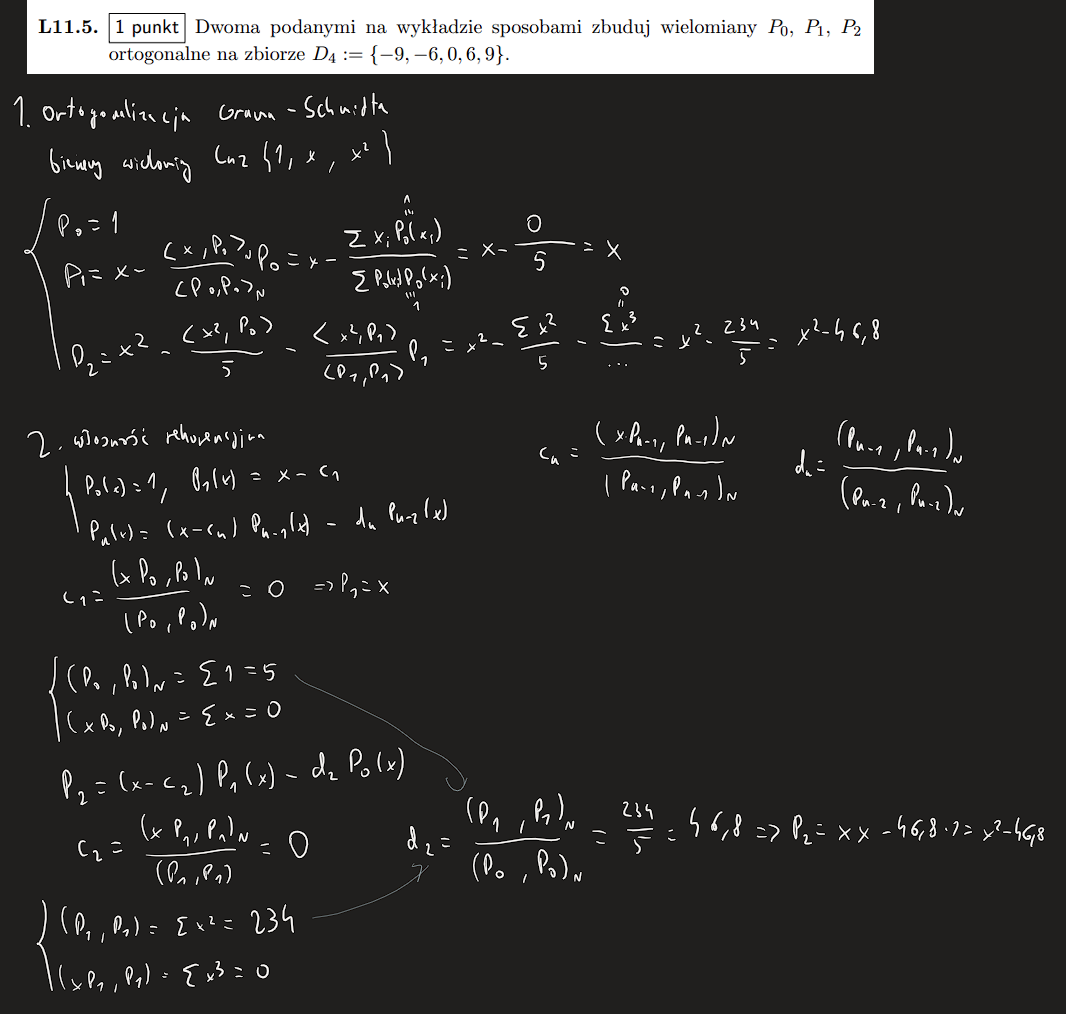 L11.5. 1 punkt Dwoma podanymi na wykładzie sposobami zbuduj wielomiany P₀, P₁, P₂
ortogonalne na zbiorze D₄ := {−9, −6, 0, 6, 9}.
1. Ortogonalizacja Grama - Schmidta
bierzemy Lnz {1, x, x²}
P₀ = 1
P₁ = x - <x, P₀>_N / <P₀, P₀>_N P₀ = x - Σ x_i P₀(x_i) / Σ P₀(x_i) P₀(x_i) = x - 0/5 = x
P₂ = x² - <x², P₀> / 5 - <x², P₁> / <P₁, P₁> P₁ = x² - Σx² / 5 - Σx³ / ... = x² - 234/5 = x² - 46,8
2. własność rekurencyjna
c_n = (x P_{n-1}, P_{n-1})_N / (P_{n-1}, P_{n-1})_N d_n = (P_{n-1}, P_{n-1})_N / (P_{n-2}, P_{n-2})_N
P₀(x) = 1, P₁(x) = x - c₁
P_n(x) = (x - c_n) P_{n-1}(x) - d_n P_{n-2}(x)
c₁ = (x P₀, P₀)_N / (P₀, P₀)_N = 0 => P₁ = x
(P₀, P₀)_N = Σ 1 = 5
(x P₀, P₀)_N = Σ x = 0
P₂ = (x - c₂) P₁(x) - d₂ P₀(x)
c₂ = (x P₁, P₁)_N / (P₁, P₁) = 0 d₂ = (P₁, P₁)_N / (P₀, P₀)_N = 234/5 = 46,8 => P₂ = x x - 46,8 · 1 = x² - 46,8
(P₁, P₁) = Σ x² = 234
(x P₁, P₁) = Σ x³ = 0